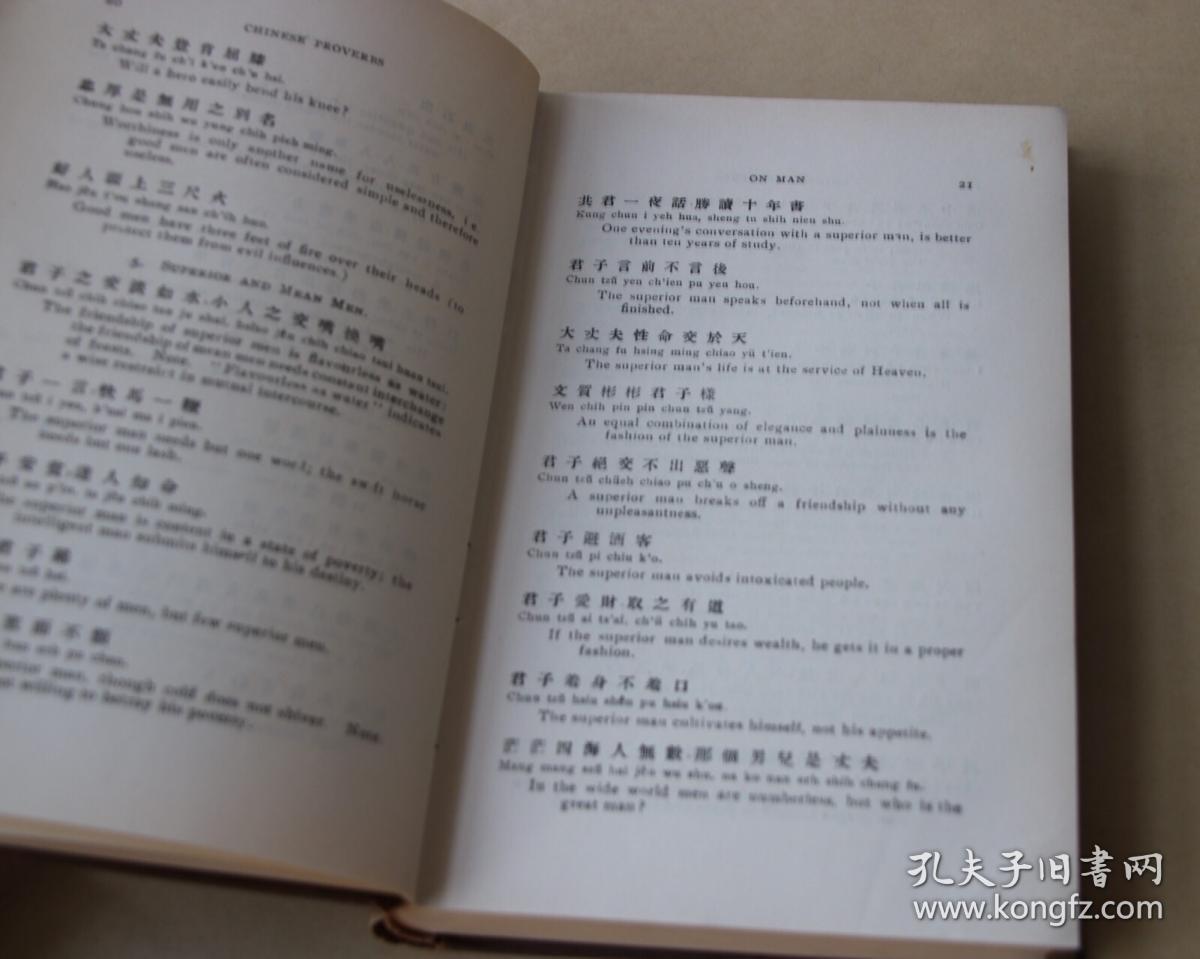 20
CHINESE PROVERBS
大丈夫豈肯屈膝
Ta chang fu ch'i k'en ch'ü hsi.
Will a hero easily bend his knee?
忠厚是無用之別名
Chung hou shih wu yung chih pieh ming.
Worthiness is only another name for uselessness, i.e.
good men are often considered simple and therefore
useless.
好人頭上三尺火
Hao jên t'ou shang san ch'ih huo.
Good men have three feet of fire over their heads (to
protect them from evil influences.)
SUPERIOR AND MEAN MEN.
君子之交淡如水小人之交嘴換嘴
The friendship of superior men is flavourless as water;
the friendship of mean men needs constant interchange
of feasts. Note. "Flavourless as water" indicates
a wise restraint in mutual intercourse.
君子一言快馬一鞭
The superior man needs but one word; the swift horse
needs but one lash.
達人知命
The superior man is content in a state of poverty; the
intelligent man submits himself to his destiny.
are plenty of men, but few superior men.
man, though cold does not shiver. Note.
willing to betray his poverty.
ON MAN
21
共君一夜話勝讀十年書
Kung chun i yeh hua, sheng tu shih nien shu.
One evening's conversation with a superior man, is better
than ten years of study.
君子言前不言後
Chun tzŭ yen ch'ien pu yen hou.
The superior man speaks beforehand, not when all is
finished.
大丈夫性命交於天
Ta chang fu hsing ming chiao yü t'ien.
The superior man's life is at the service of Heaven.
文質彬彬君子樣
Wen chih pin pin chun tzŭ yang.
An equal combination of elegance and plainness is the
fashion of the superior man.
君子絕交不出惡聲
Chun tzŭ chüeh chiao pu ch'u o sheng.
A superior man breaks off a friendship without any
unpleasantness.
君子避酒客
Chun tzŭ pi chiu k'o.
The superior man avoids intoxicated people.
君子愛財取之有道
Chun tzŭ ai ts'ai, ch'ü chih yu tao.
If the superior man desires wealth, he gets it in a proper
fashion.
君子羞身不羞口
Chun tzŭ hsiu shên pu hsiu k'ou.
The superior man cultivates himself, not his appetite.
茫茫四海人無數那個男兒是丈夫
Mang mang ssŭ hai jên wu shu, na ko nan erh shih chang fu.
In the wide world men are numberless, but who is the
great man?
孔夫子旧书网
www.kongfz.com